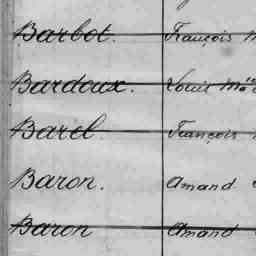 Barbot. François
Bardoux. Louis
Barel. François
Baron. Amand
Baron Amand